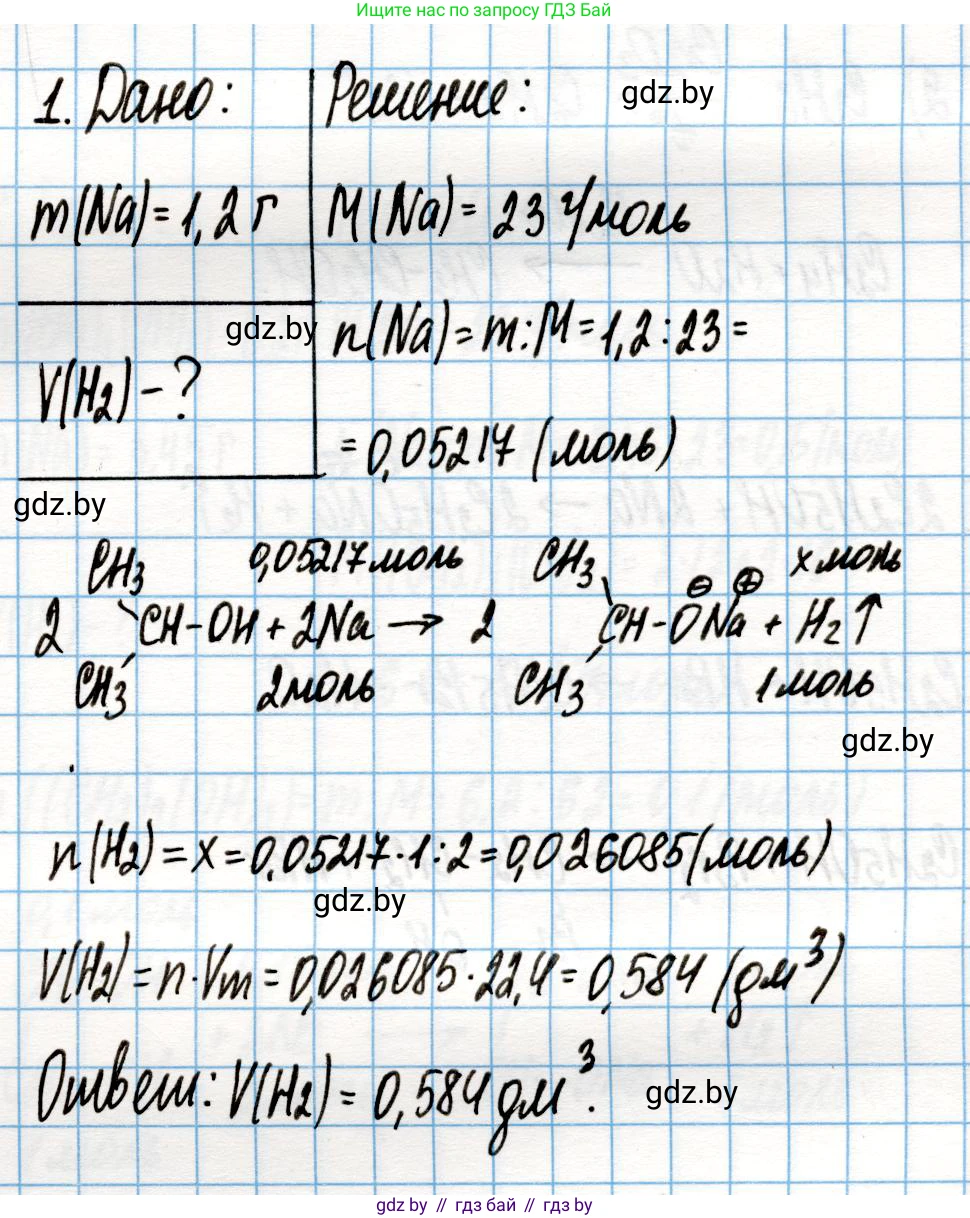 Ищите нас по запросу ГДЗ Бай
1. Дано: Решение: gdz.by
m(Na)=1,2 г M(Na)= 23 г/моль
gdz.by n(Na)=m:M=1,2:23=
V(H2)-?
=0,05217 (моль)
gdz.by
CH3 0,05217 моль CH3 x моль
2 CH-OH+2Na → 2 CH-O⊖Na⊕ + H2↑
CH3 2моль CH3 1моль
gdz.by
n(H2)=x=0,05217·1:2=0,026085(моль)
gdz.by
V(H2)=n·Vm=0,026085·22,4=0,584 (дм³)
Ответ: V(H2)= 0,584 дм³. gdz.by
gdz.by // гдз бай // гдз.by